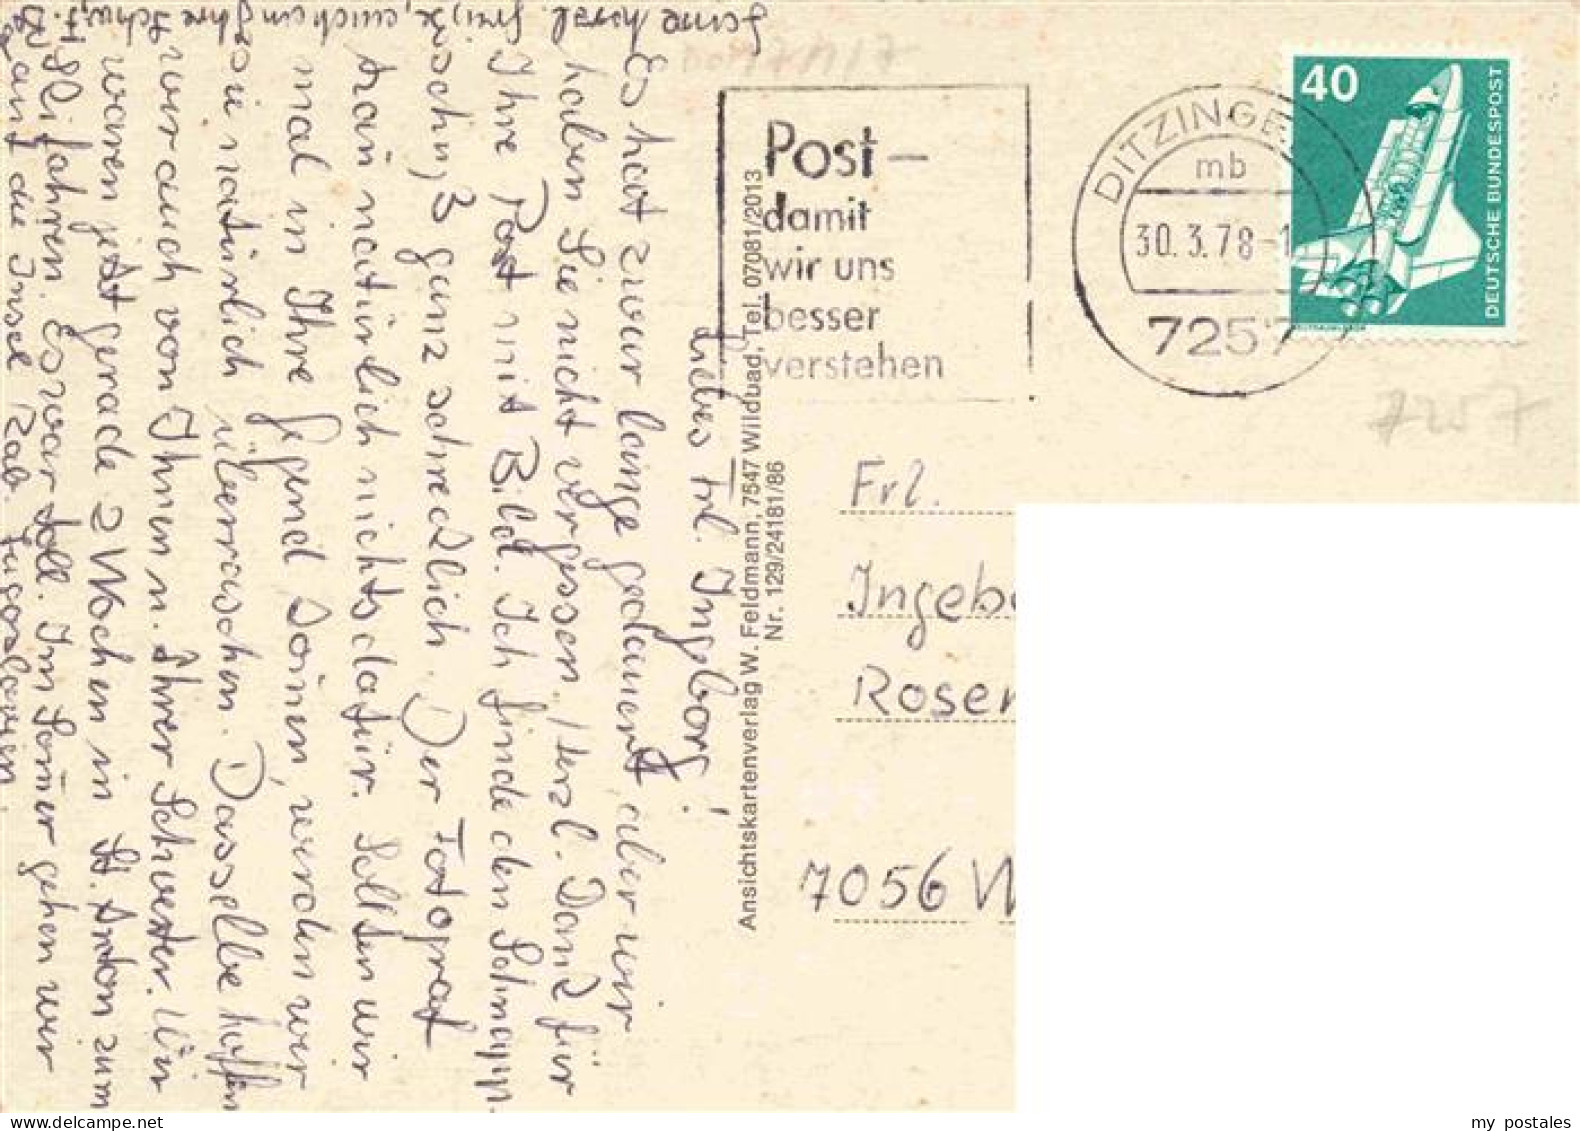 Liebes Frl. Ingeborg!
Es hat zwar lange gedauert aber wir
haben Sie nicht vergessen. Herzl. Dank für
Ihre Post mit Bild. Ich finde den
ganz schrecklich. Der Fotograf
kann natürlich nichts dafür. Sollten wir
mal in Ihre Gegend kommen, werden wir
Sie natürlich überraschen. Dasselbe hoffen
wir auch von Ihnen u. Ihrer Schwester. Wir
waren jetzt gerade 2 Wochen in St. Anton zum
Ski fahren. Es war toll. Im Sommer gehen wir
auf die Insel Rab Jugoslavien.
auch an Ihre
Post-
damit
wir uns
besser
verstehen
DITZINGEN
mb
30.3.78-1
7257
40
DEUTSCHE BUNDESPOST
7257
Ansichtskartenverlag W. Feldmann, 7547 Wildbad, Tel. 07081/2013
Nr. 129/24181/86
Frl.
Ingeb
Rosen
7056 W
my postales
Delcampe.net